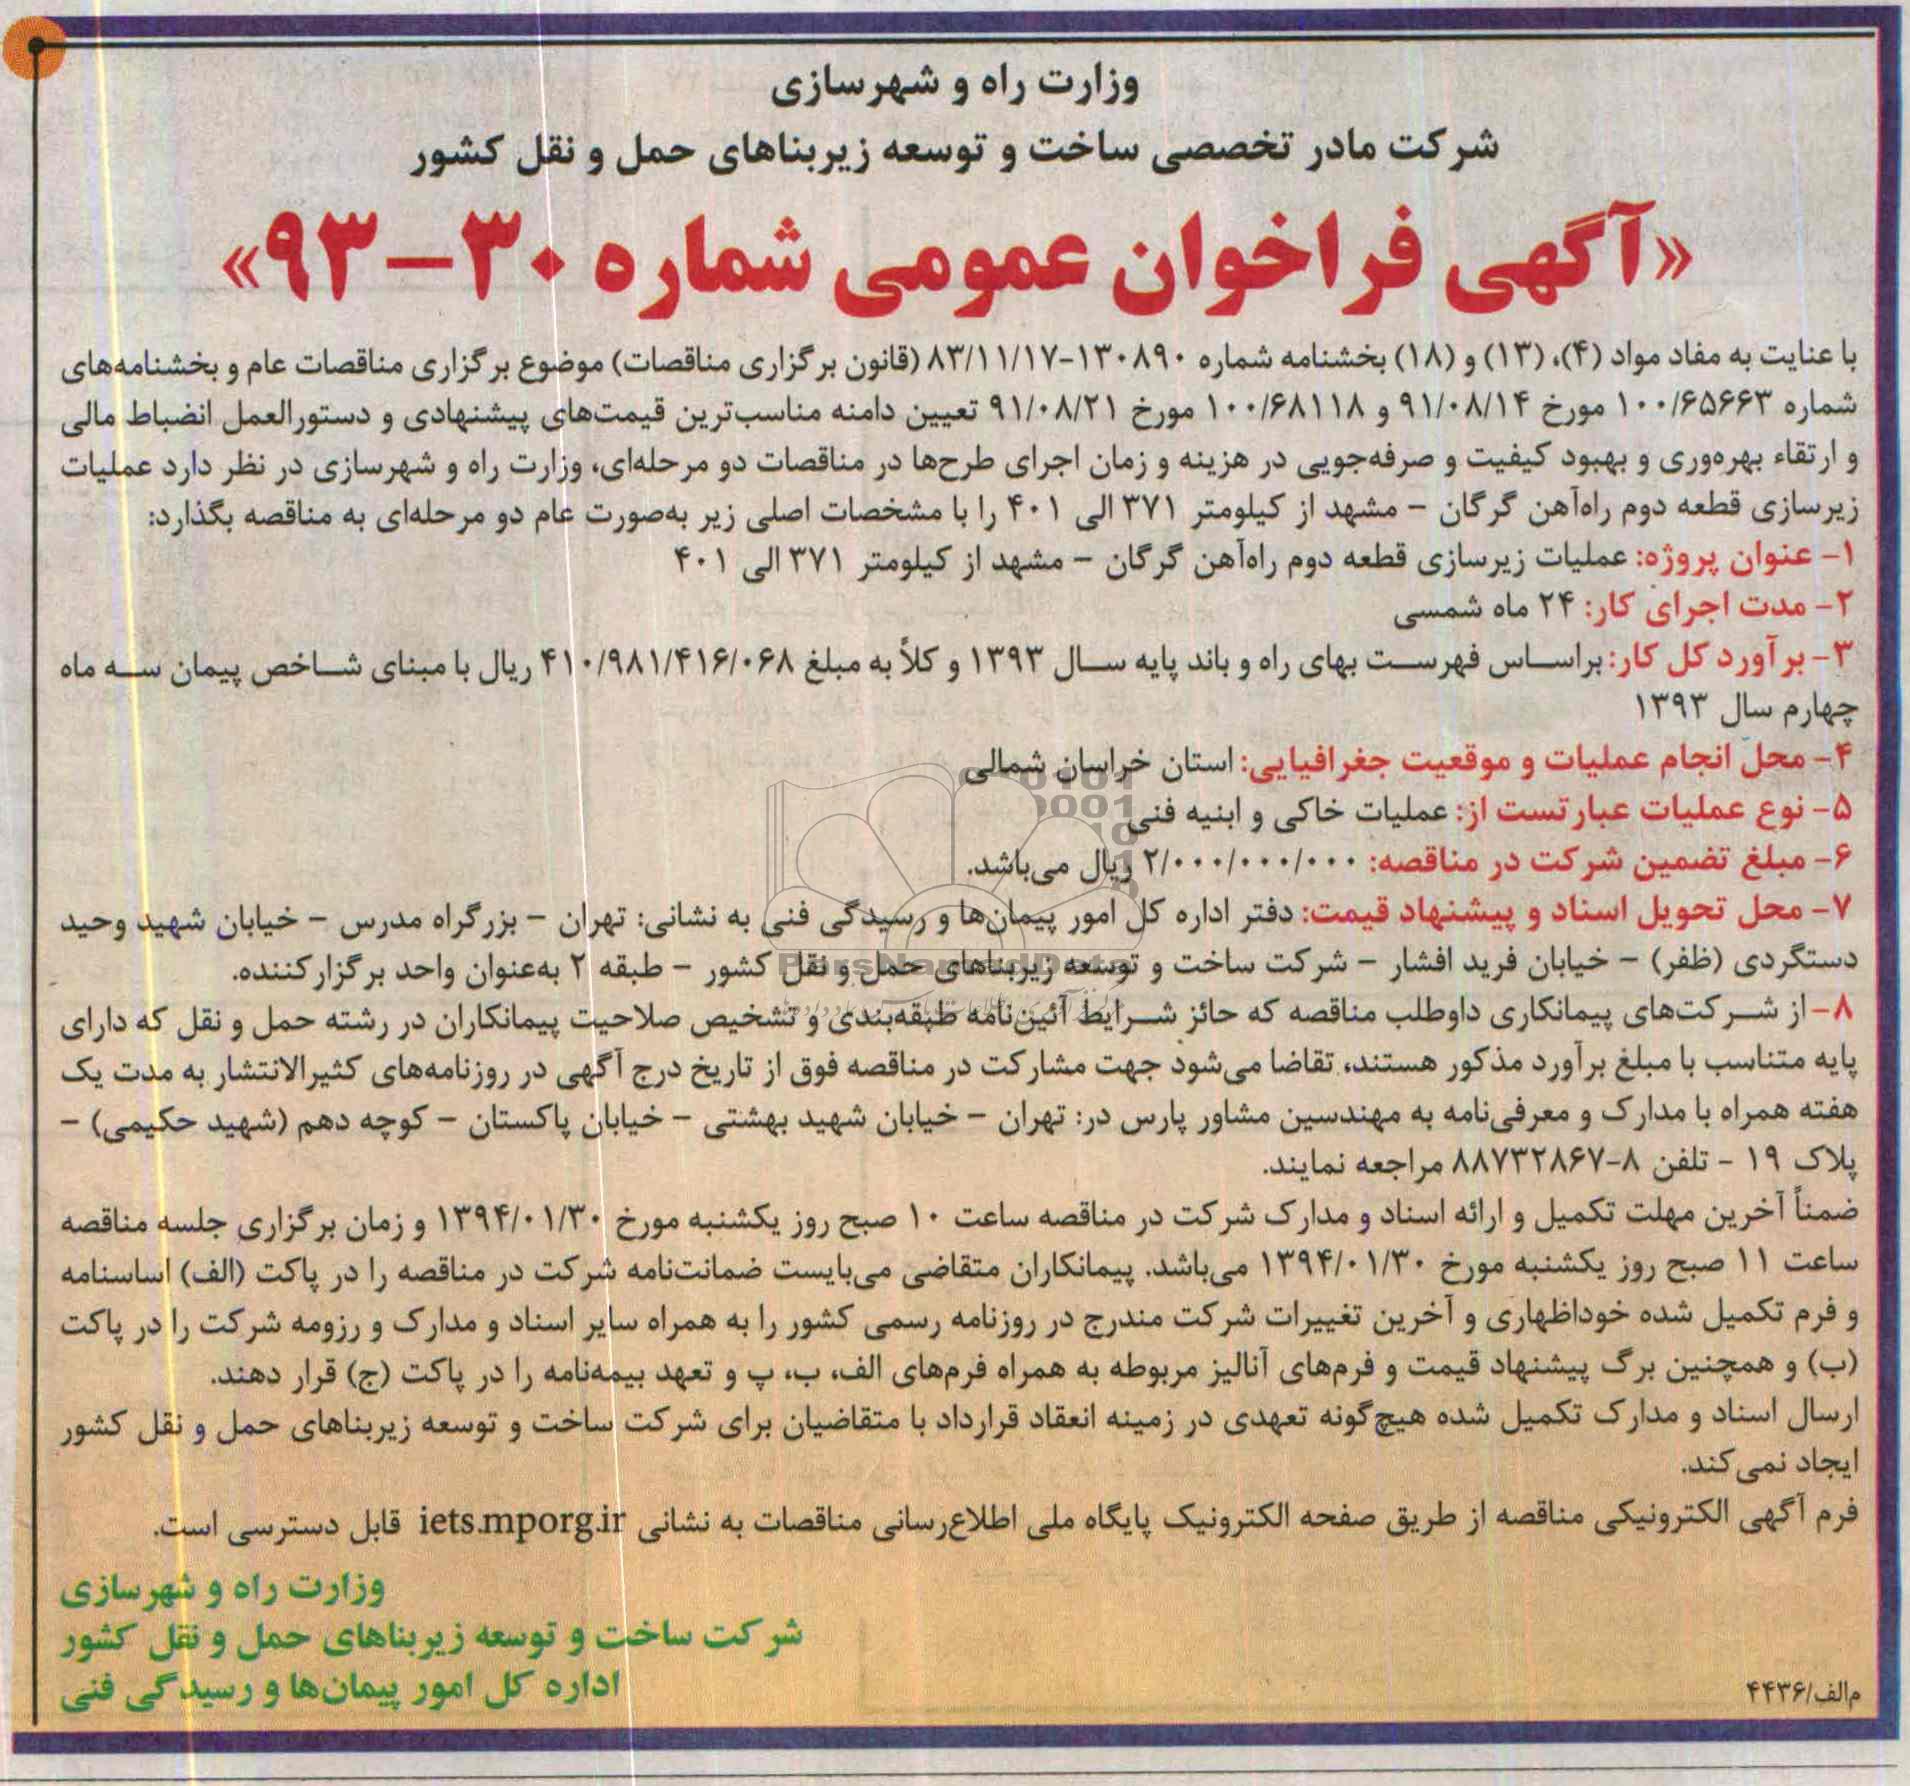 وزارت راه و شهرسازی
شرکت مادر تخصصی ساخت و توسعه زیربناهای حمل و نقل کشور
«آگهی فراخوان عمومی شماره ۳۰-۹۳»
با عنایت به مفاد مواد (۴)، (۱۳) و (۱۸) بخشنامه شماره ۱۳۰۸۹۰-۸۳/۱۱/۱۷ (قانون برگزاری مناقصات) موضوع برگزاری مناقصات عام و بخشنامه‌های
شماره ۱۰۰/۶۵۶۶۳ مورخ ۹۱/۰۸/۱۴ و ۱۰۰/۶۸۱۱۸ مورخ ۹۱/۰۸/۲۱ تعیین دامنه مناسب‌ترین قیمت‌های پیشنهادی و دستورالعمل انضباط مالی
و ارتقاء بهره‌وری و بهبود کیفیت و صرفه‌جویی در هزینه و زمان اجرای طرح‌ها در مناقصات دو مرحله‌ای، وزارت راه و شهرسازی در نظر دارد عملیات
زیرسازی قطعه دوم راه‌آهن گرگان - مشهد از کیلومتر ۳۷۱ الی ۴۰۱ را با مشخصات اصلی زیر به‌صورت عام دو مرحله‌ای به مناقصه بگذارد:
۱- عنوان پروژه: عملیات زیرسازی قطعه دوم راه‌آهن گرگان - مشهد از کیلومتر ۳۷۱ الی ۴۰۱
۲- مدت اجرای کار: ۲۴ ماه شمسی
۳- برآورد کل کار: براساس فهرست بهای راه و باند پایه سال ۱۳۹۳ و کلاً به مبلغ ۴۱۰/۹۸۱/۴۱۶/۰۶۸ ریال با مبنای شاخص پیمان سه ماه
چهارم سال ۱۳۹۳
۴- محل انجام عملیات و موقعیت جغرافیایی: استان خراسان شمالی
۵- نوع عملیات عبارتست از: عملیات خاکی و ابنیه فنی
۶- مبلغ تضمین شرکت در مناقصه: ۲/۰۰۰/۰۰۰/۰۰۰ ریال می‌باشد.
۷- محل تحویل اسناد و پیشنهاد قیمت: دفتر اداره کل امور پیمان‌ها و رسیدگی فنی به نشانی: تهران - بزرگراه مدرس - خیابان شهید وحید
دستگردی (ظفر) - خیابان فرید افشار - شرکت ساخت و توسعه زیربناهای حمل و نقل کشور - طبقه ۲ به‌عنوان واحد برگزارکننده.
ParsNamadData
۸- از شرکت‌های پیمانکاری داوطلب مناقصه که حائز شرایط آئین‌نامه طبقه‌بندی و تشخیص صلاحیت پیمانکاران در رشته حمل و نقل که دارای
پایه متناسب با مبلغ برآورد مذکور هستند، تقاضا می‌شود جهت مشارکت در مناقصه فوق از تاریخ درج آگهی در روزنامه‌های کثیرالانتشار به مدت یک
هفته همراه با مدارک و معرفی‌نامه به مهندسین مشاور پارس در: تهران - خیابان شهید بهشتی - خیابان پاکستان - کوچه دهم (شهید حکیمی) -
پلاک ۱۹ - تلفن ۸-۸۸۷۳۲۸۶۷ مراجعه نمایند.
ضمناً آخرین مهلت تکمیل و ارائه اسناد و مدارک شرکت در مناقصه ساعت ۱۰ صبح روز یکشنبه مورخ ۱۳۹۴/۰۱/۳۰ و زمان برگزاری جلسه مناقصه
ساعت ۱۱ صبح روز یکشنبه مورخ ۱۳۹۴/۰۱/۳۰ می‌باشد. پیمانکاران متقاضی می‌بایست ضمانت‌نامه شرکت در مناقصه را در پاکت (الف) اساسنامه
و فرم تکمیل شده خوداظهاری و آخرین تغییرات شرکت مندرج در روزنامه رسمی کشور را به همراه سایر اسناد و مدارک و رزومه شرکت را در پاکت
(ب) و همچنین برگ پیشنهاد قیمت و فرم‌های آنالیز مربوطه به همراه فرم‌های الف، ب، پ و تعهد بیمه‌نامه را در پاکت (ج) قرار دهند.
ارسال اسناد و مدارک تکمیل شده هیچ‌گونه تعهدی در زمینه انعقاد قرارداد با متقاضیان برای شرکت ساخت و توسعه زیربناهای حمل و نقل کشور
ایجاد نمی‌کند.
فرم آگهی الکترونیکی مناقصه از طریق صفحه الکترونیک پایگاه ملی اطلاع‌رسانی مناقصات به نشانی iets.mporg.ir قابل دسترسی است.
وزارت راه و شهرسازی
شرکت ساخت و توسعه زیربناهای حمل و نقل کشور
اداره کل امور پیمان‌ها و رسیدگی فنی
م‌الف/۴۴۳۶